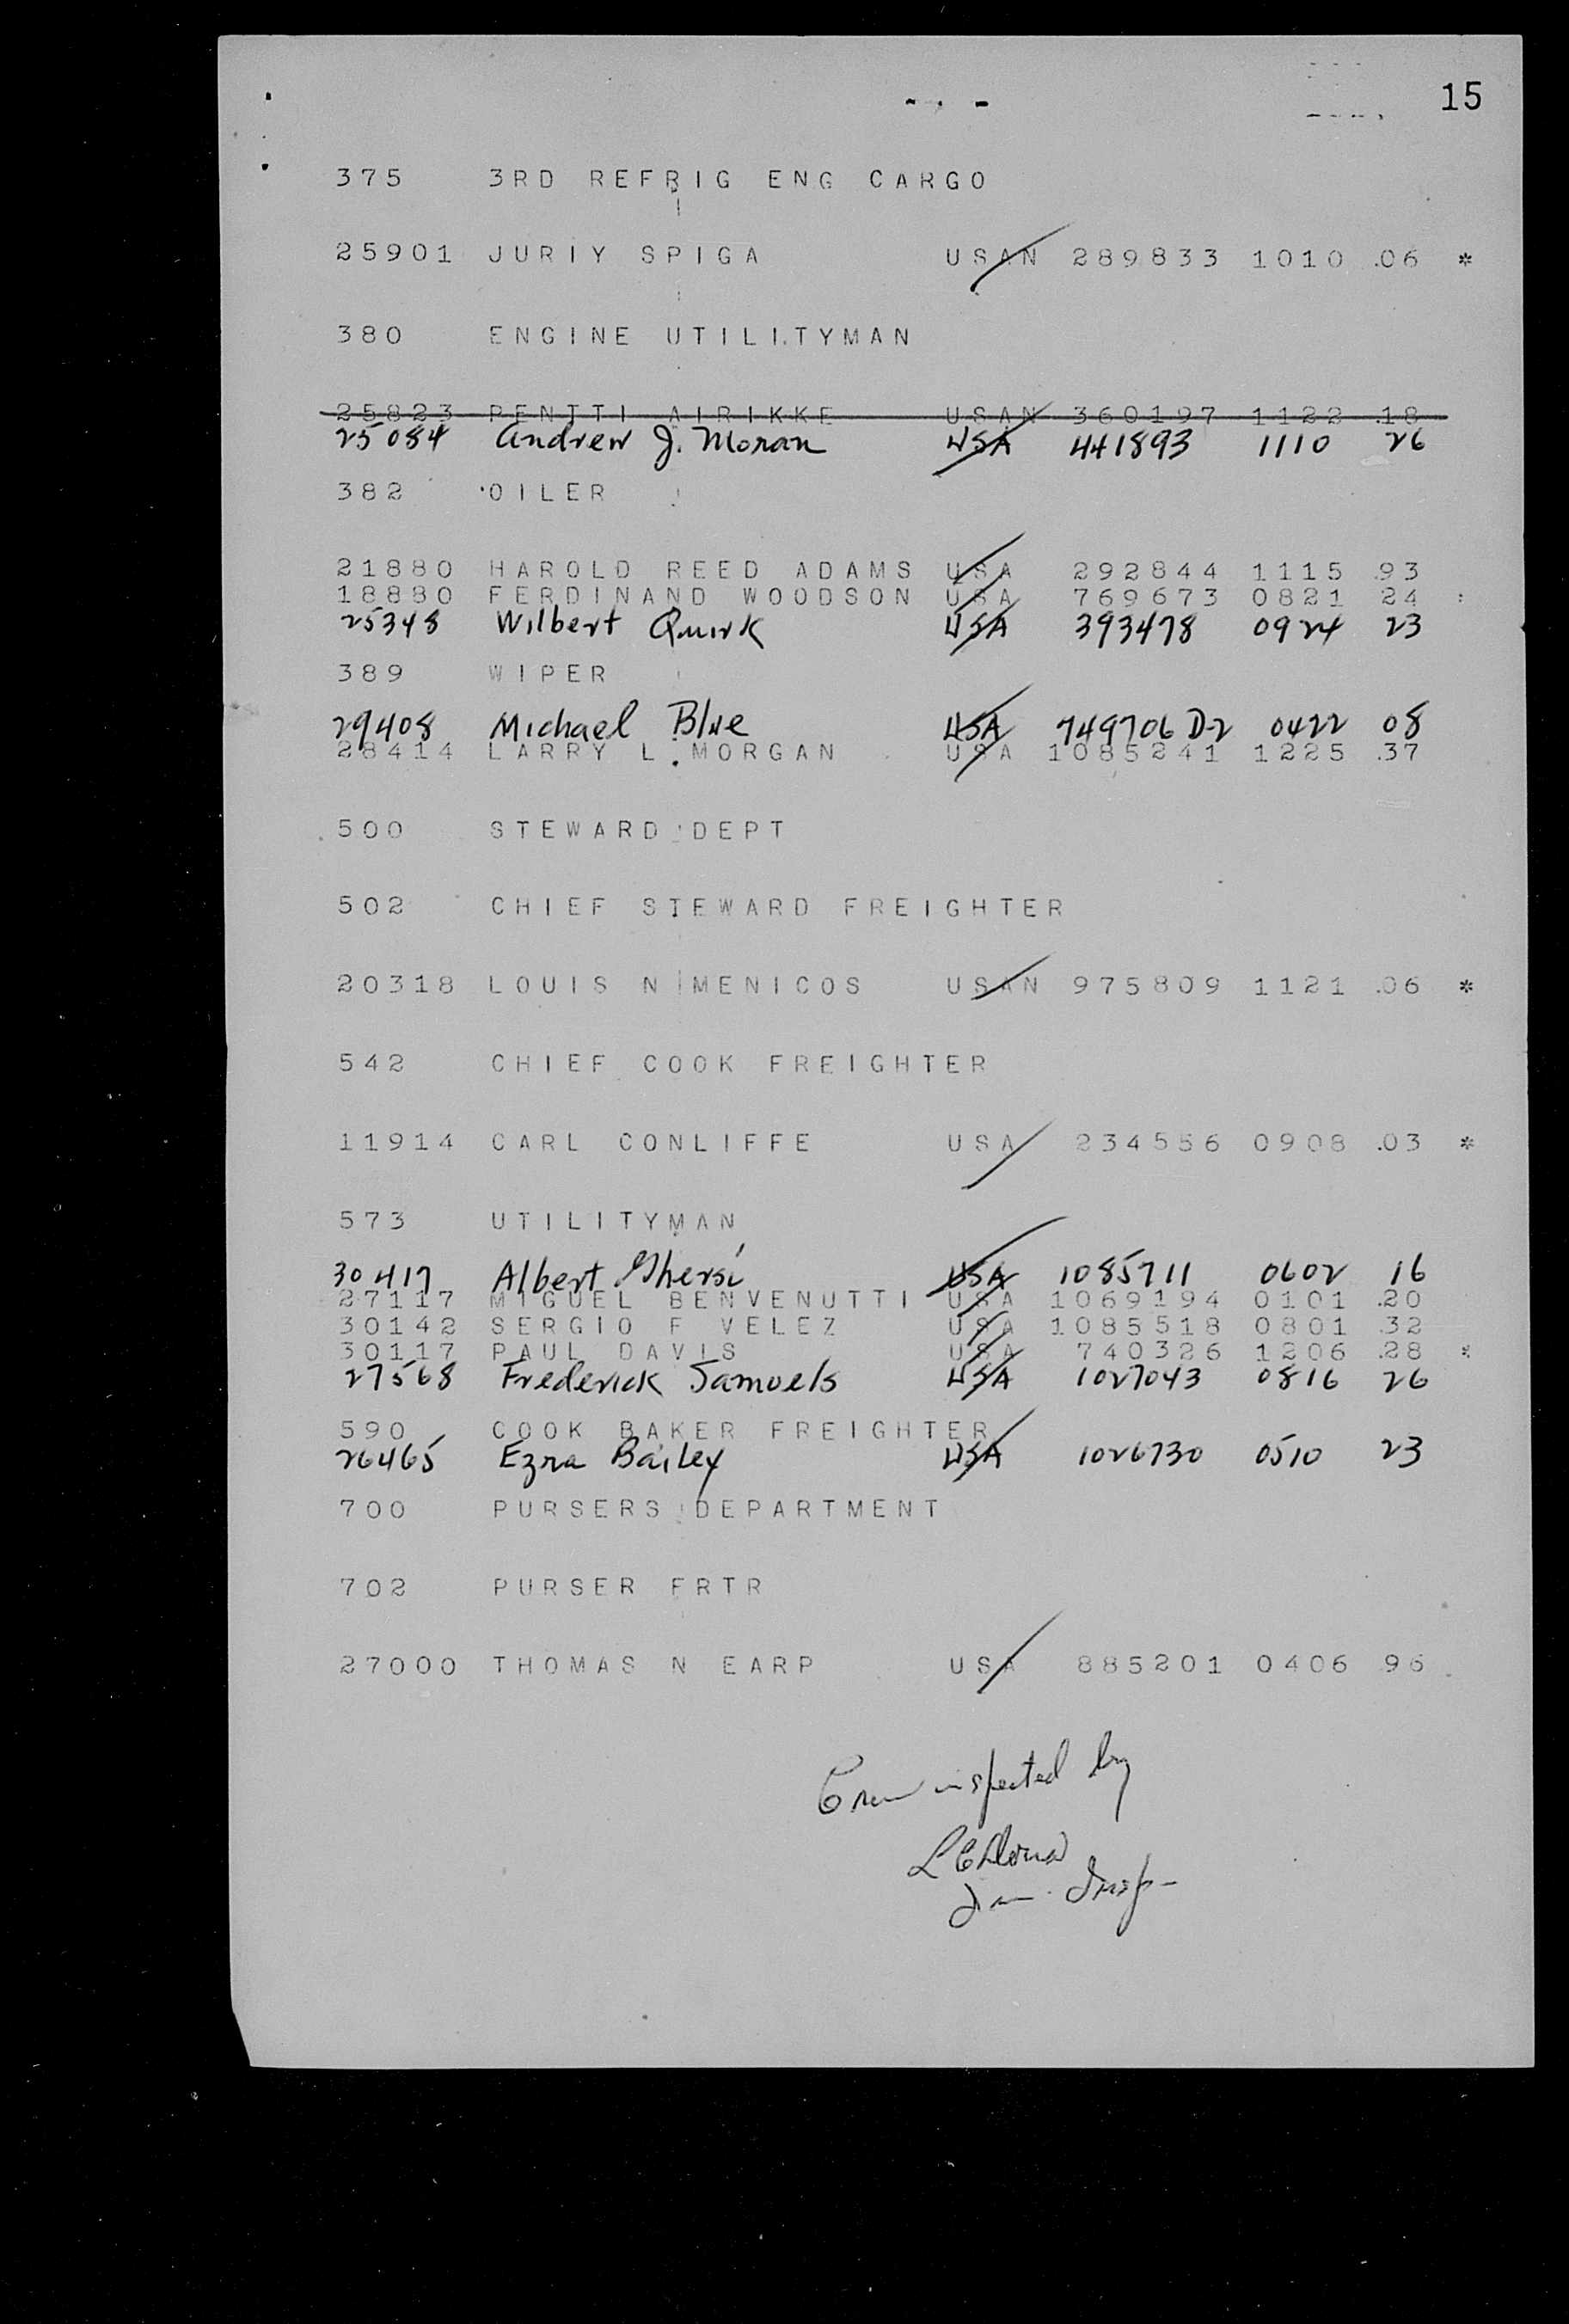 15
375 3RD REFRIG ENG CARGO
25901 JURIY SPIGA USAN 289833 1010 .06 *
380 ENGINE UTILITYMAN
25823 PENTTI AIRIKKE USAN 360197 1122 .18
25084 Andrew J. Moran USA 441893 1110 26
382 OILER
21880 HAROLD REED ADAMS USA 292844 1115 .93
18880 FERDINAND WOODSON USA 769673 0821 24
25348 Wilbert Quirk USA 393478 0924 23
389 WIPER
29408 Michael Blue USA 749706 D-2 0422 08
28414 LARRY L MORGAN USA 1085241 1225 .37
500 STEWARD DEPT
502 CHIEF STEWARD FREIGHTER
20318 LOUIS N MENICOS USAN 975809 1121 .06 *
542 CHIEF COOK FREIGHTER
11914 CARL CONLIFFE USA 234556 0908 .03 *
573 UTILITYMAN
30417 Albert Ghersi USA 1085711 0602 16
27117 MIGUEL BENVENUTTI USA 1069194 0101 .20
30142 SERGIO F VELEZ USA 1085518 0801 .32
30117 PAUL DAVIS USA 740326 1206 .28 *
27568 Frederick Samuels USA 1027043 0816 26
590 COOK BAKER FREIGHTER
26465 Ezra Bailey USA 1026730 0510 23
700 PURSERS DEPARTMENT
702 PURSER FRTR
27000 THOMAS N EARP USA 885201 0406 96
Crew inspected by
Insp